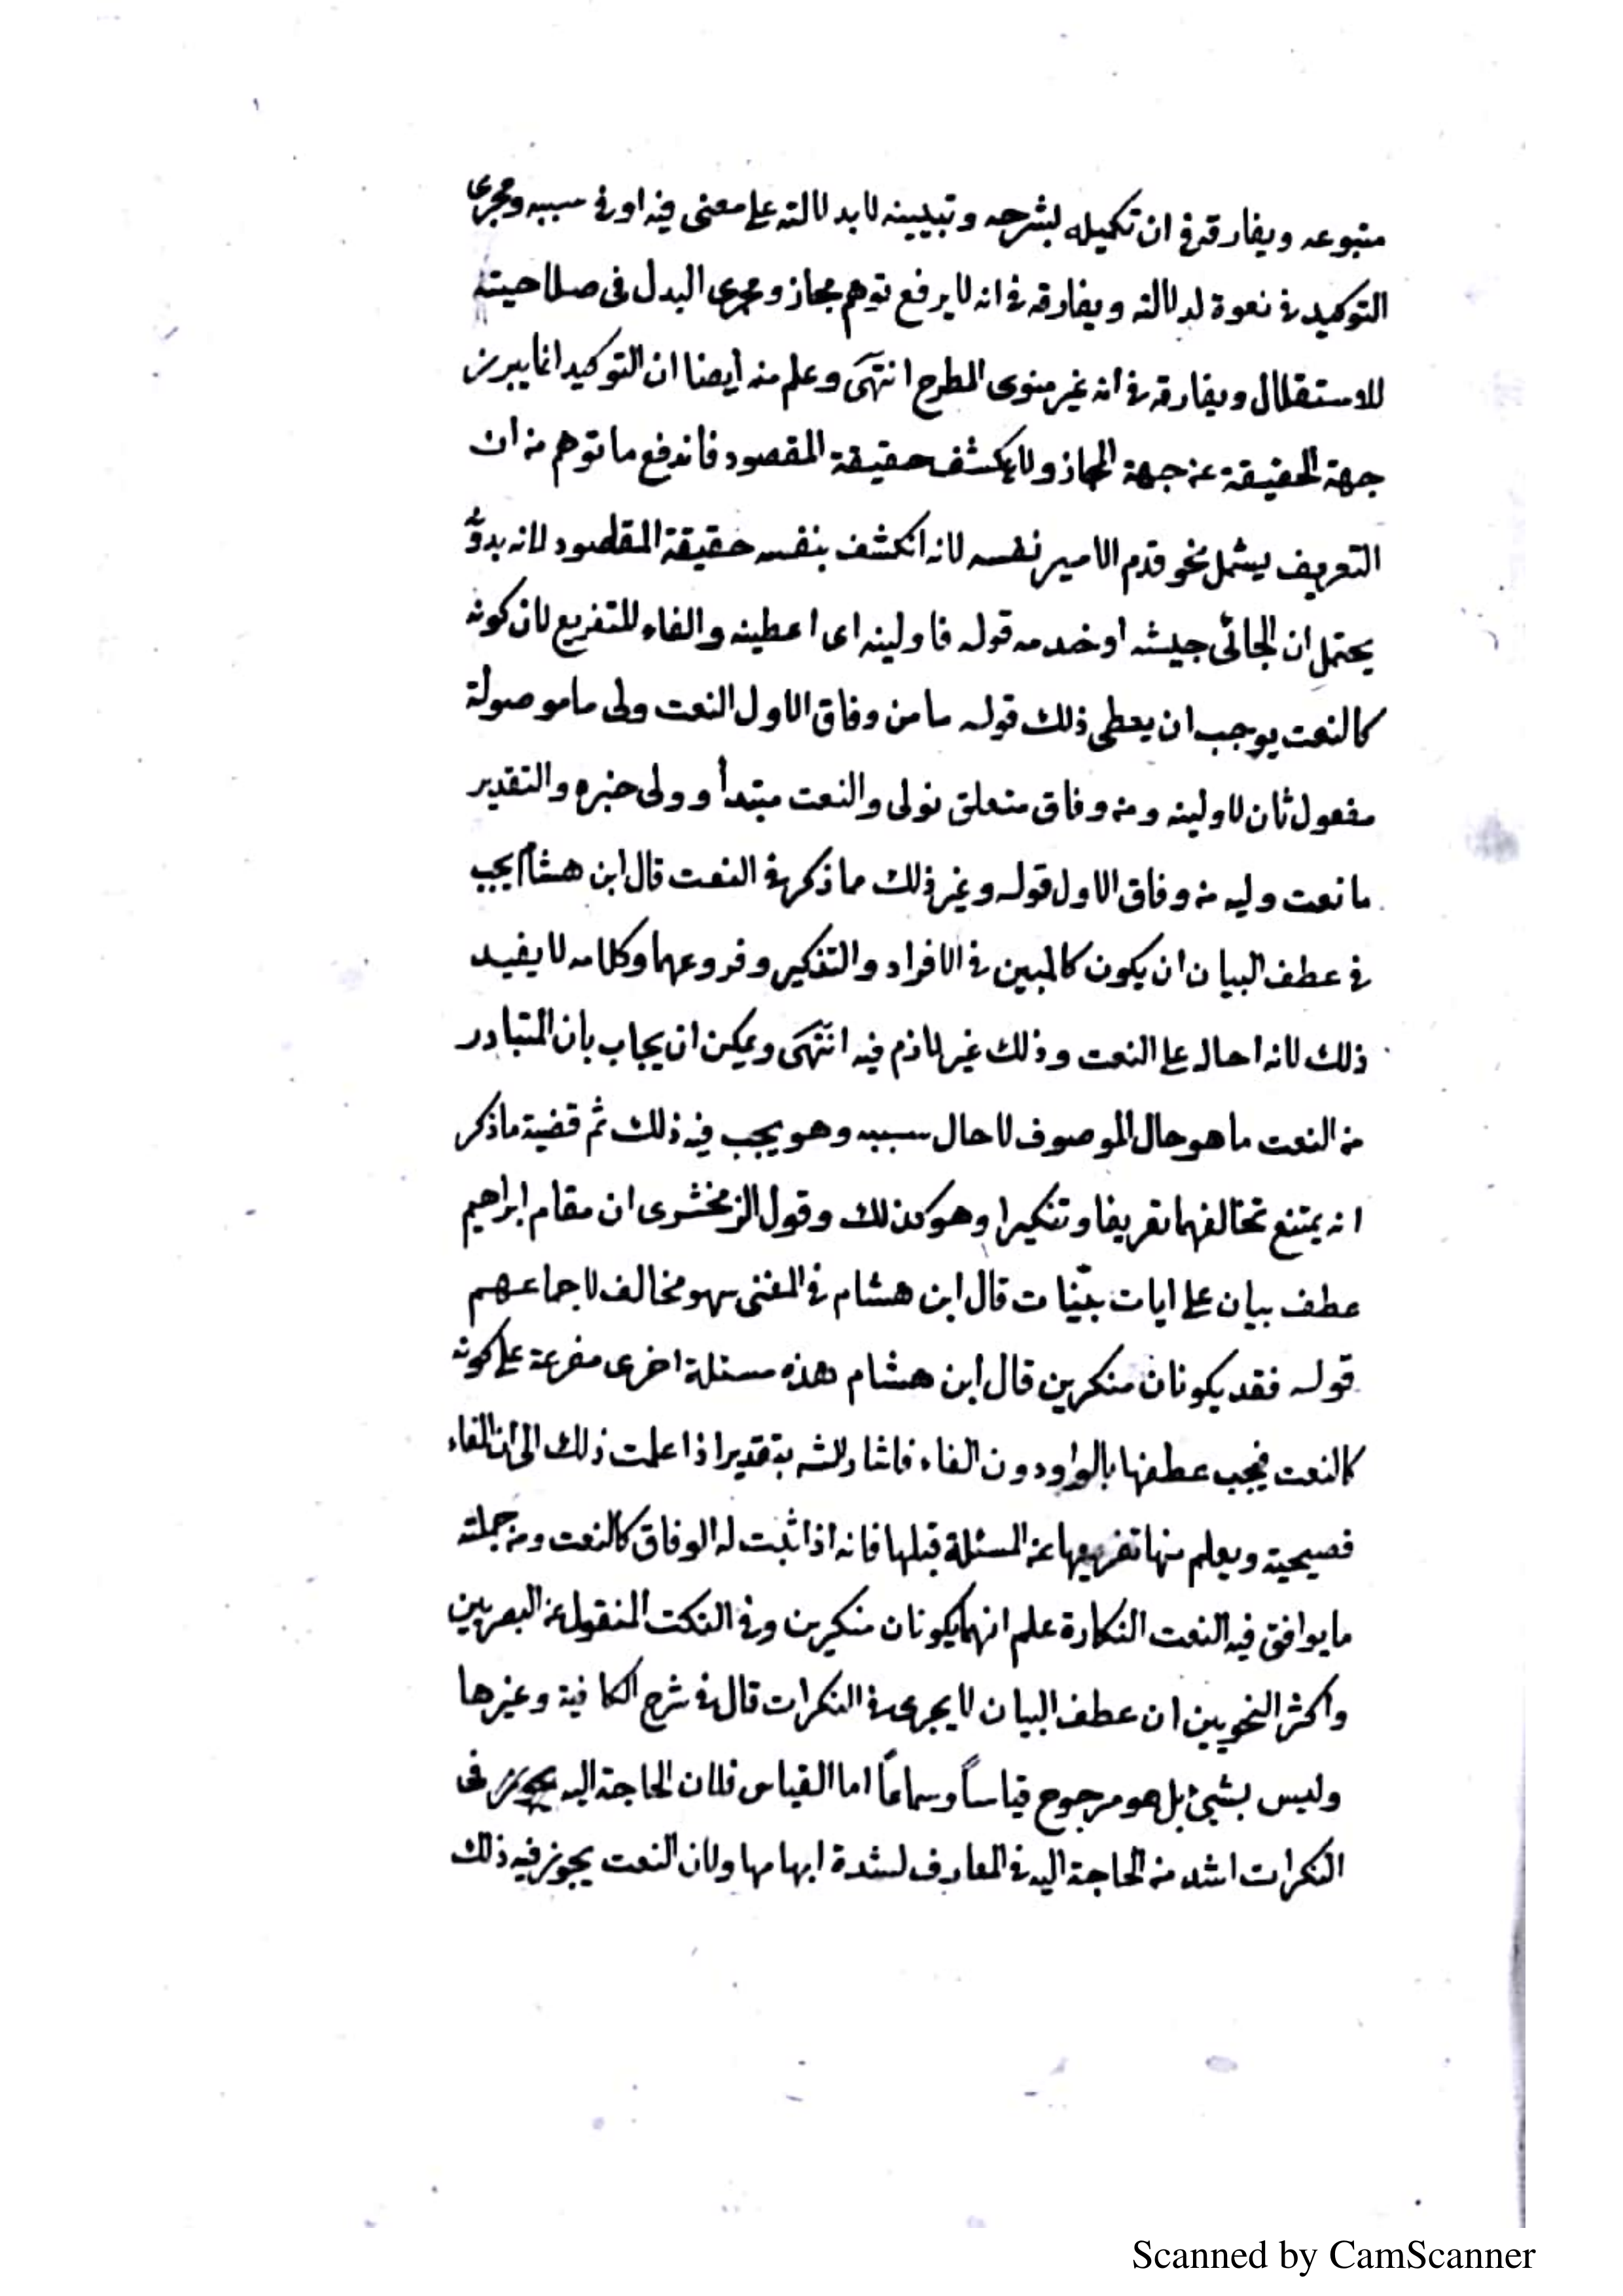 متبوعه ويفارقه في ان تكميله بشرحه وتبيينه لا بدلالته على معنى فيه او في سببه ومجرى
التوكيد في نعوة لدلالته ويفارقه في انه لا يرفع توهم مجاز ومجرى البدل فى صلاحيته
للاستقلال ويفارقه في انه غير منوى الطرح انتهى وعلم منه أيضا ان التوكيد انما يبرز
جهة الحقيقة عن جهة المجاز ولا يكشف حقيقة المقصود فاندفع ما توهم من ان
التعريف يشمل نحو قدم الامير نفسه لانه انكشف بنفسه حقيقة المقصود لانه بدونه
يحتمل ان الجائى جيشه او خدمه قوله فاولينه اى اعطينه والفاء للتفريع لان كونه
كالنعت يوجب ان يعطى ذلك قوله ما من وفاق الاول النعت ولى ما موصولة
مفعول ثان لاولينه ومن وفاق متعلق بولى والنعت مبتدأ وولى خبره والتقدير
ما نعت وليه من وفاق الاول قوله وغير ذلك مما ذكر في النعت قال ابن هشام يجب
في عطف البيان ان يكون كالمبين في الافراد والتذكير وفروعهما وكلامه لا يفيد
ذلك لانه احال على النعت وذلك غير لازم فيه انتهى ويمكن ان يجاب بان المتبادر
من النعت ما هو حال الموصوف لا حال سببه وهو يجب فيه ذلك ثم قضية ما ذكر
انه يمتنع تخالفهما تعريفا وتنكيرا وهو كذلك وقول الزمخشرى ان مقام ابراهيم
عطف بيان على ايات بيّنات قال ابن هشام في المغنى سهو مخالف لاجماعهم
قوله فقد يكونان منكرين قال ابن هشام هذه مسئلة اخرى مفرعة على كونه
كالنعت فيجب عطفها بالواو دون الفاء فاشار الش بتقدير اذا علمت ذلك الى ان الفاء
فصيحية ويعلم منها تفريعها عن المسئلة قبلها فانه اذا ثبت له الوفاق كالنعت ومن جملته
ما يوافق فيه النعت النكارة علم انهما يكونان منكرين وفي النكت المنقول عن البصريين
واكثر النحويين ان عطف البيان لا يجرى في النكرات قال في شرح الكافية وغيرها
وليس بشئ بل هو مرجوح قياساً وسماعاً اما القياس فلان الحاجة اليه فى
النكرات اشد من الحاجة اليه في المعارف لشدة ابهامها ولان النعت يجوز فيه ذلك
Scanned by CamScanner